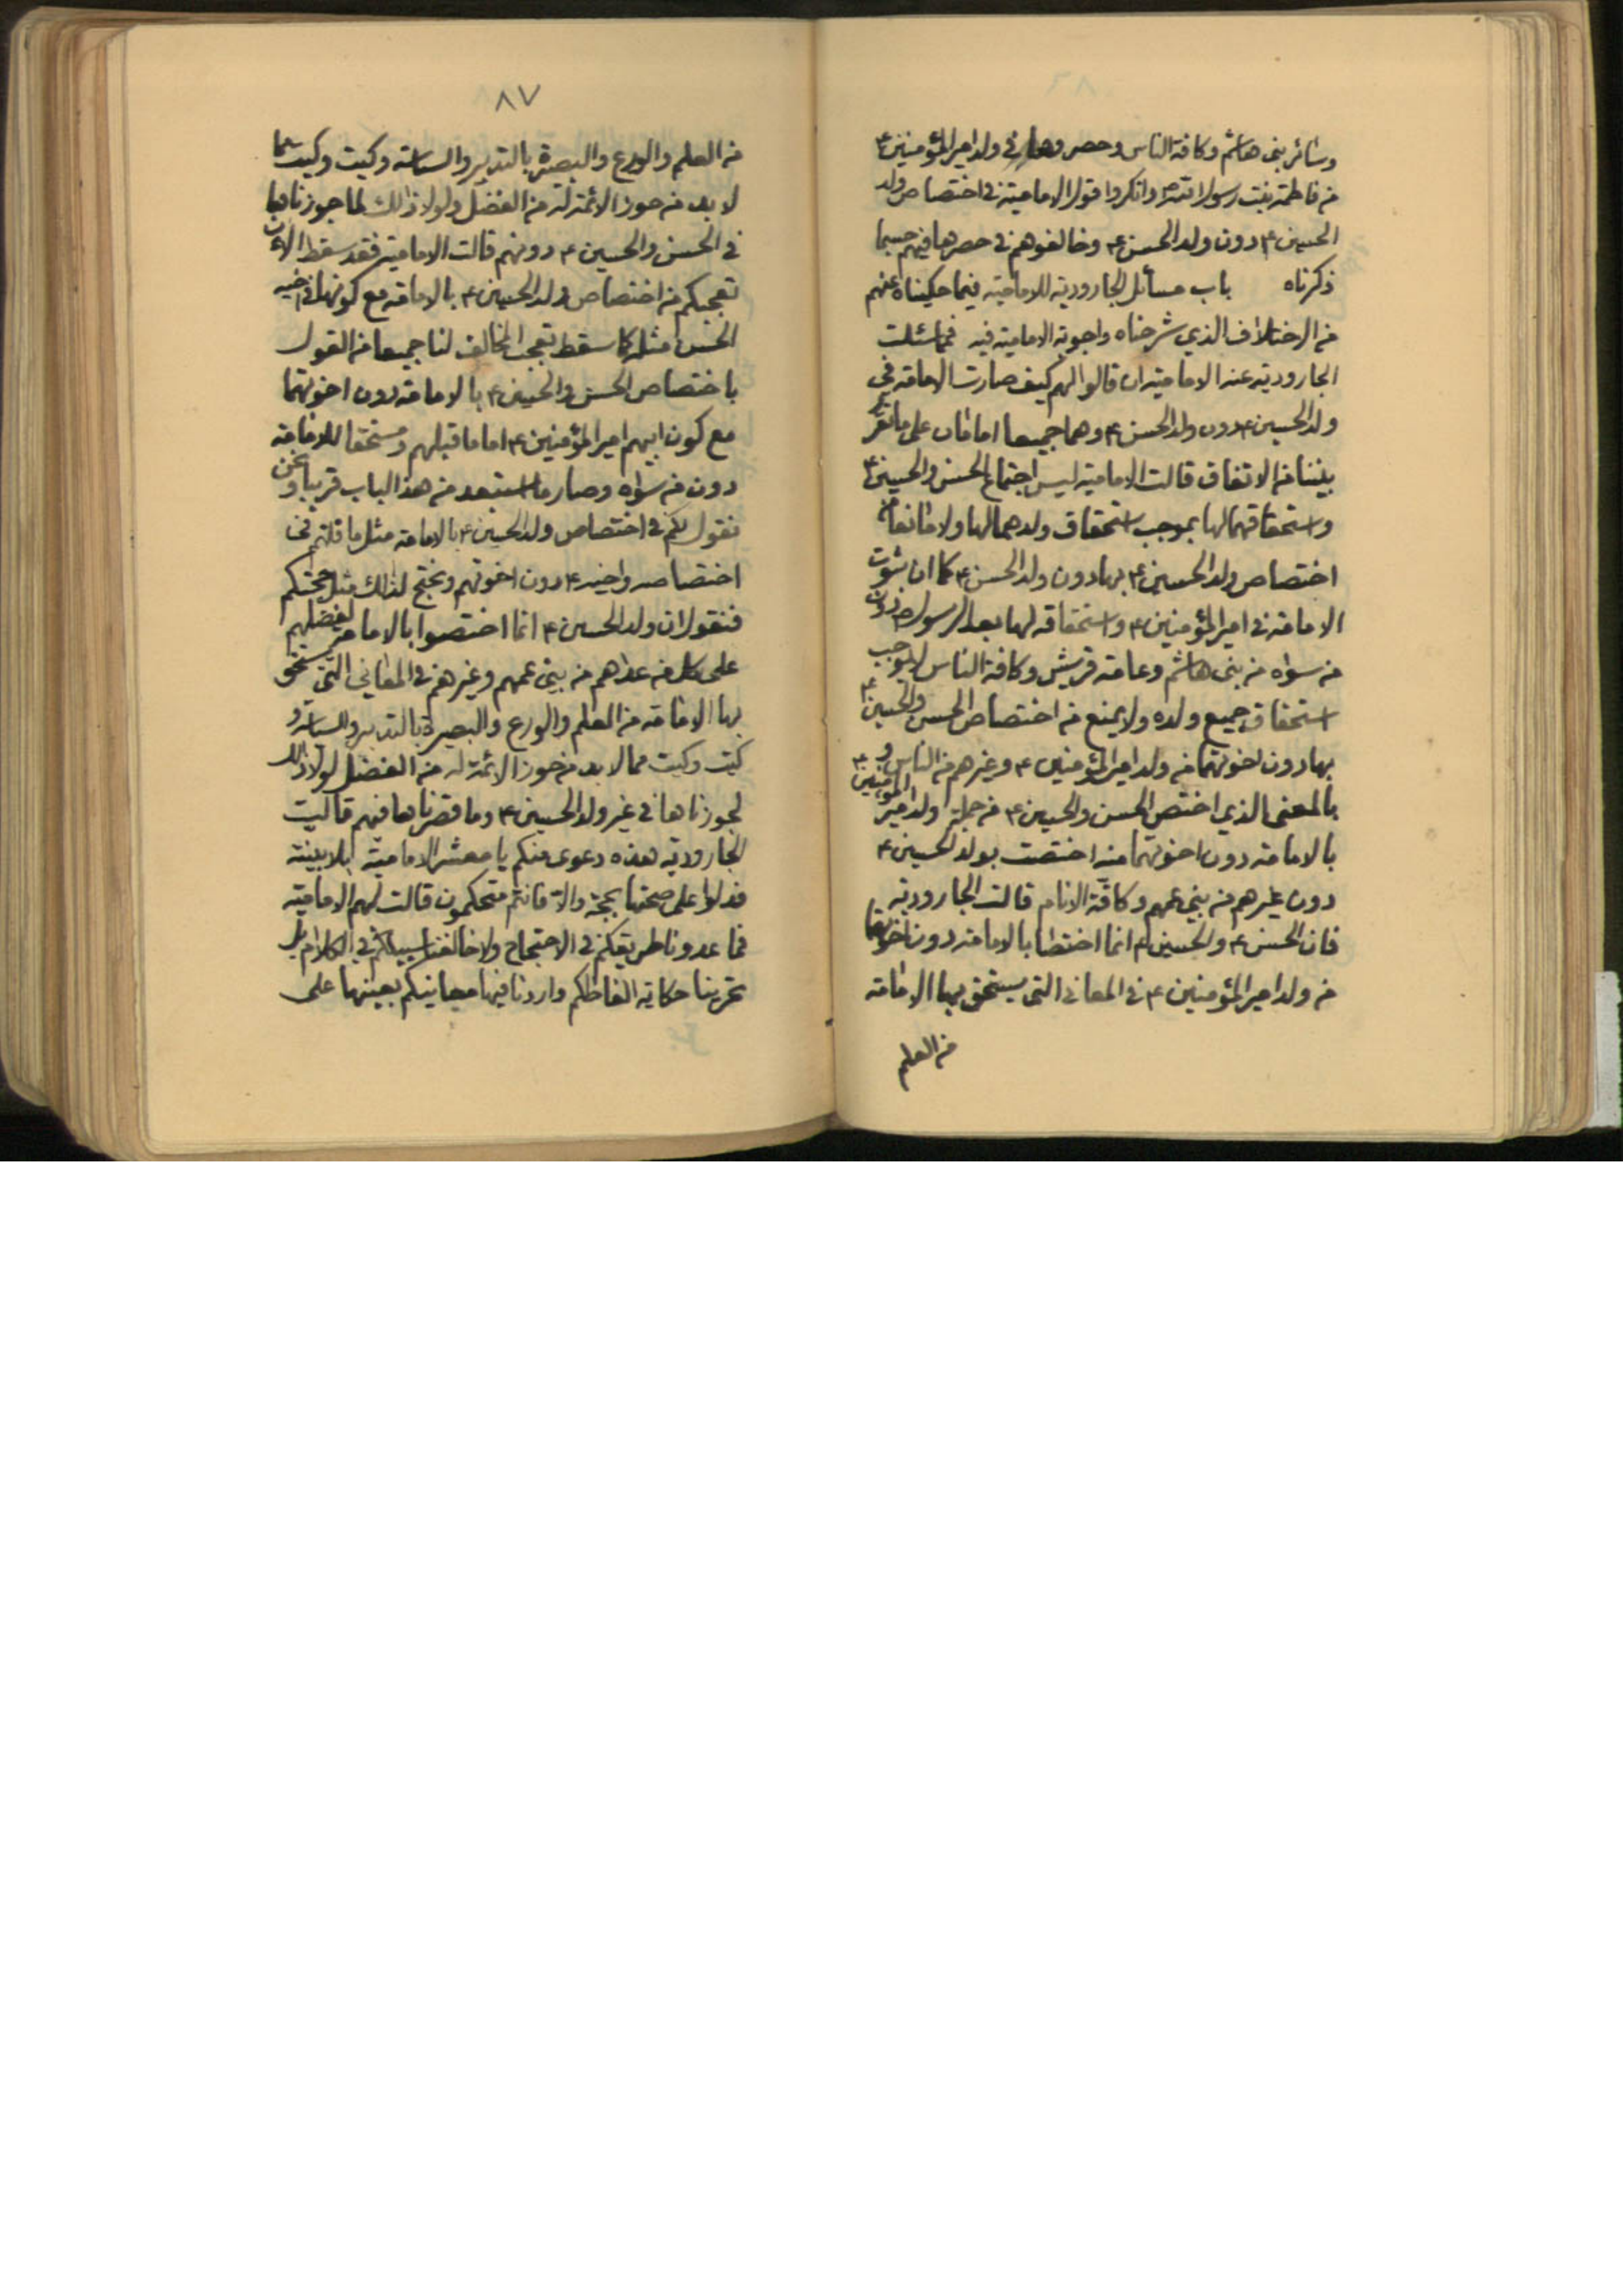 وسائر بنى هاشم وكافة الناس وحصروها في ولد امير المؤمنين ع
من فاطمة بنت رسول الله ص وانكروا قول الامامية في اختصاص ولد
الحسين ع دون ولد الحسن ع وخالفوهم في حصرها فيهم حسبما
ذكرناه باب مسائل الجارودية للامامية فيما حكيناه عنهم
من الاختلاف الذي شرحناه واجوبة الامامية فيه فمما سئلت
الجارودية عنه الامامية ان قالوا لهم كيف صارت الامامة في
ولد الحسين ع دون ولد الحسن ع وهما جميعا امامان على ما تقرر
بيننا من الاتفاق قالت الامامية ليس اجتماع الحسن والحسين ع
واستحقاقهما لها بموجب استحقاق ولدهما لها ولا مانعا من
اختصاص ولد الحسين ع بها دون ولد الحسن ع كما ان ثبوت
الامامة في امير المؤمنين ع واستحقاقه لها بعد الرسول ص دون
من سواه من بنى هاشم وعامة قريش وكافة الناس لا يوجب
استحقاق جميع ولده ولا يمنع من اختصاص الحسن والحسين ع
بها دون اخوتهما من ولد امير المؤمنين ع وغيرهم من الناس و
بالمعنى الذي اختص الحسن والحسين ع من جملة ولد امير المؤمنين ع
بالامامة دون اخوتهما منه اختصت بولد الحسين ع
دون غيرهم من بني عمهم وكافة الانام قالت الجارودية
فان الحسن ع والحسين ع انما اختصا بالامامة دون اخوتهما
من ولد امير المؤمنين ع في المعاني التى يستحق بها الامامة
من العلم
٨٧
من العلم والورع والبصيرة بالتدبير والسياسة وكيت وكيت مما
لا بد من حوز الائمة له من الفضل ولولا ذلك لما جوزناها
في الحسن والحسين ع دونهم قالت الامامية فقد سقط الان
تعجبكم من اختصاص ولد الحسين ع بالامامة مع كونها في اخيه
الحسن مثله كما سقط تعجب المخالف لنا جميعا من القول
باختصاص الحسن والحسين ع بالامامة دون اخوتهما
مع كون ابيهم امير المؤمنين ع اماما قبلهم ومستحقا للامامة
دون من سواه وصار ما استبعد من هذا الباب قريبا ونحن
نقول لكم في اختصاص ولد الحسين ع بالامامة مثل ما قلتم في
اختصاصه واخيه ع دون اخوتهم ونحتج لذلك مثل حجتكم
فنقول ان ولد الحسين ع انما اختصوا بالامامة لفضلهم
على كل من عداهم من بني عمهم وغيرهم في المعاني التي يستحق
بها الامامة من العلم والورع والبصيرة بالتدبير والسياسة و
كيت وكيت مما لا بد من حوز الائمة له من الفضل لولا ذلك
لجوزناها في غير ولد الحسين ع وما قصرناها فيهم قالت
الجارودية هذه دعوى منكم يا معشر الامامية بلا بينة
فدلوا على صحتها بحجة والا فانتم متحكمون قالت لهم الامامية
فما عدونا طريقكم في الاحتجاج ولا خالفنا سبيلكم في الكلام بل
تحرينا حكاية الفاظكم واردنا فيها معانيكم بعينها على